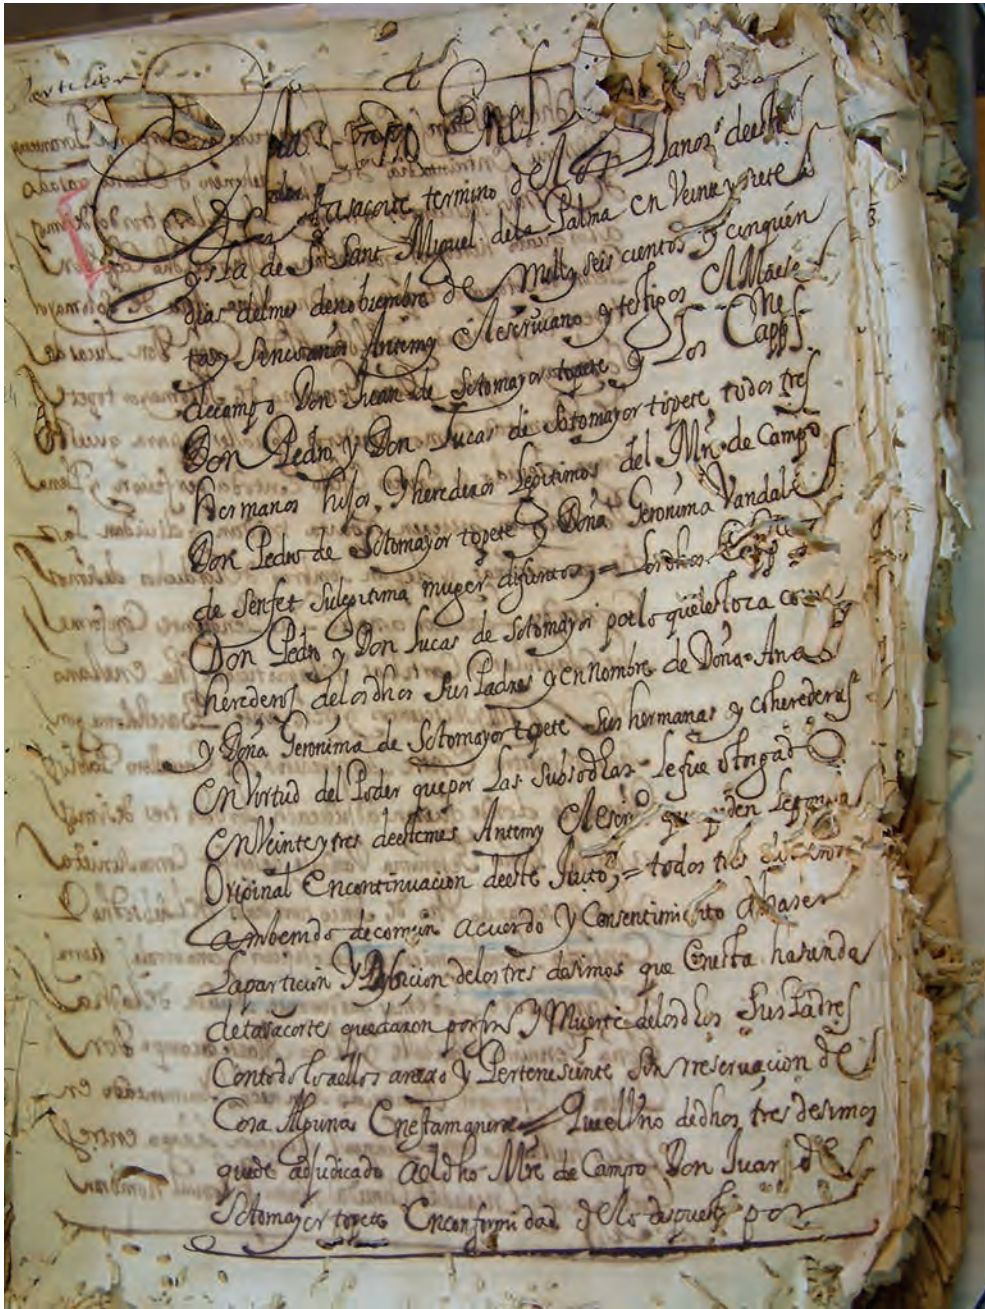 En el
tasacorte termino de los Llanos desta
ysla de Sr Sant Miguel dela Palma en Veinte y siete
dias delmes denobiembre de Mill y seis cientos y cinquen
tay Antemy el escrivano y testigos el Maese
decampo Don Juan de Sotomayor topete y Los Cappes
Don Pedro y Don Lucas de Sotomayor topete todos tres
hermanos hijos, y herederos Legitimos del Mre de Campo
Don Pedro de Sotomayor topete y Doña Geronima Vandale
de Senfet sulegitima muger difuntos, = Los dhos Cappes
Don Pedro y Don Lucas de Sotomayor porlo quelestoca como
herederos delosdhos Sus Padres y en nombre de Doña Ana
y Doña Geronima de Sotomayor topete Sus hermanas y coherederas
En Virtud del Poder quepor Las Susodhas Lefue otorgado
En Veinteytres deestemes Antemy el escro
Original Encontinuacion deeste = todos tres
Conbenido decomun acuerdo y Consentimiento a haser
Laparticion y delostres desimos que Enesta hasienda
detasacorte quedaron porfin y Muerte delosdhos Sus Padres
Contodo Loaellos anexo y Pertenesiente Sin rreservacion de
Cosa Alguna Enestamanera Queel Uno dedhos tres desimos
quede adjudicado aeldho Mre de Campo Don Juan de
Sotomayor topete Enconformidad delo dispuesto por